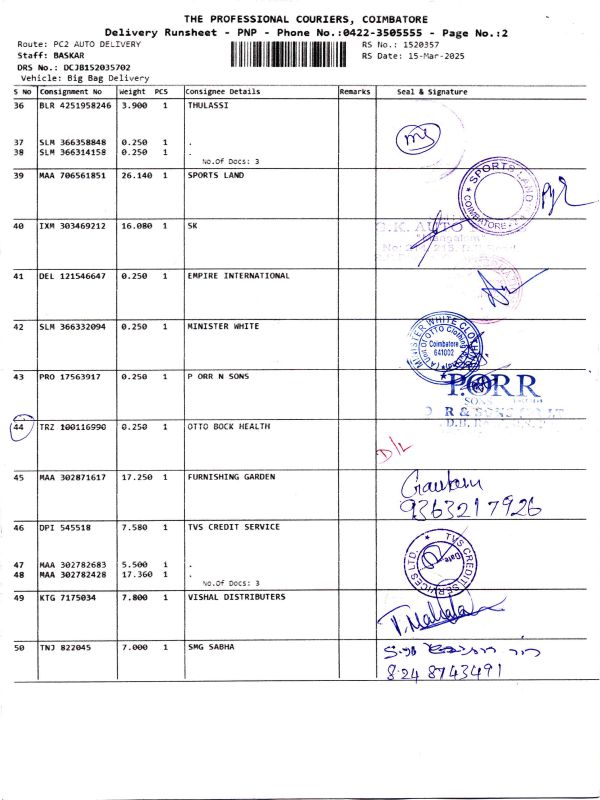 THE PROFESSIONAL COURIERS, COIMBATORE
Delivery Runsheet - PNP - Phone No.:0422-3505555 - Page No.:2
Route: PC2 AUTO DELIVERY RS No.: 1520357
Staff: BASKAR RS Date: 15-Mar-2025
DRS No.: DCJB152035702
Vehicle: Big Bag Delivery
S No Consignment No Weight PCS Consignee Details Remarks Seal & Signature
36 BLR 4251958246 3.900 1 THULASSI
37 SLM 366358848 0.250 1 .
38 SLM 366314158 0.250 1 .
No.Of Docs: 3
39 MAA 706561851 26.140 1 SPORTS LAND
SPORTS LAND
COIMBATORE
40 IXM 303469212 16.080 1 SK
G.K. AUTO
41 DEL 121546647 0.250 1 EMPIRE INTERNATIONAL
42 SLM 366332094 0.250 1 MINISTER WHITE
MINISTER WHITE
Coimbatore
641002
43 PRO 17563917 0.250 1 P ORR N SONS
P.ORR
SONS
44 TRZ 100116990 0.250 1 OTTO BOCK HEALTH
D/L
45 MAA 302871617 17.250 1 FURNISHING GARDEN
Gautam
9363217926
46 DPI 545518 7.580 1 TVS CREDIT SERVICE
TVS CREDIT SERVICES LTD.
Date
47 MAA 302782683 5.500 1 .
48 MAA 302782428 17.360 1 .
No.Of Docs: 3
49 KTG 7175034 7.800 1 VISHAL DISTRIBUTERS
50 TNJ 822045 7.000 1 SMG SABHA
8248743491